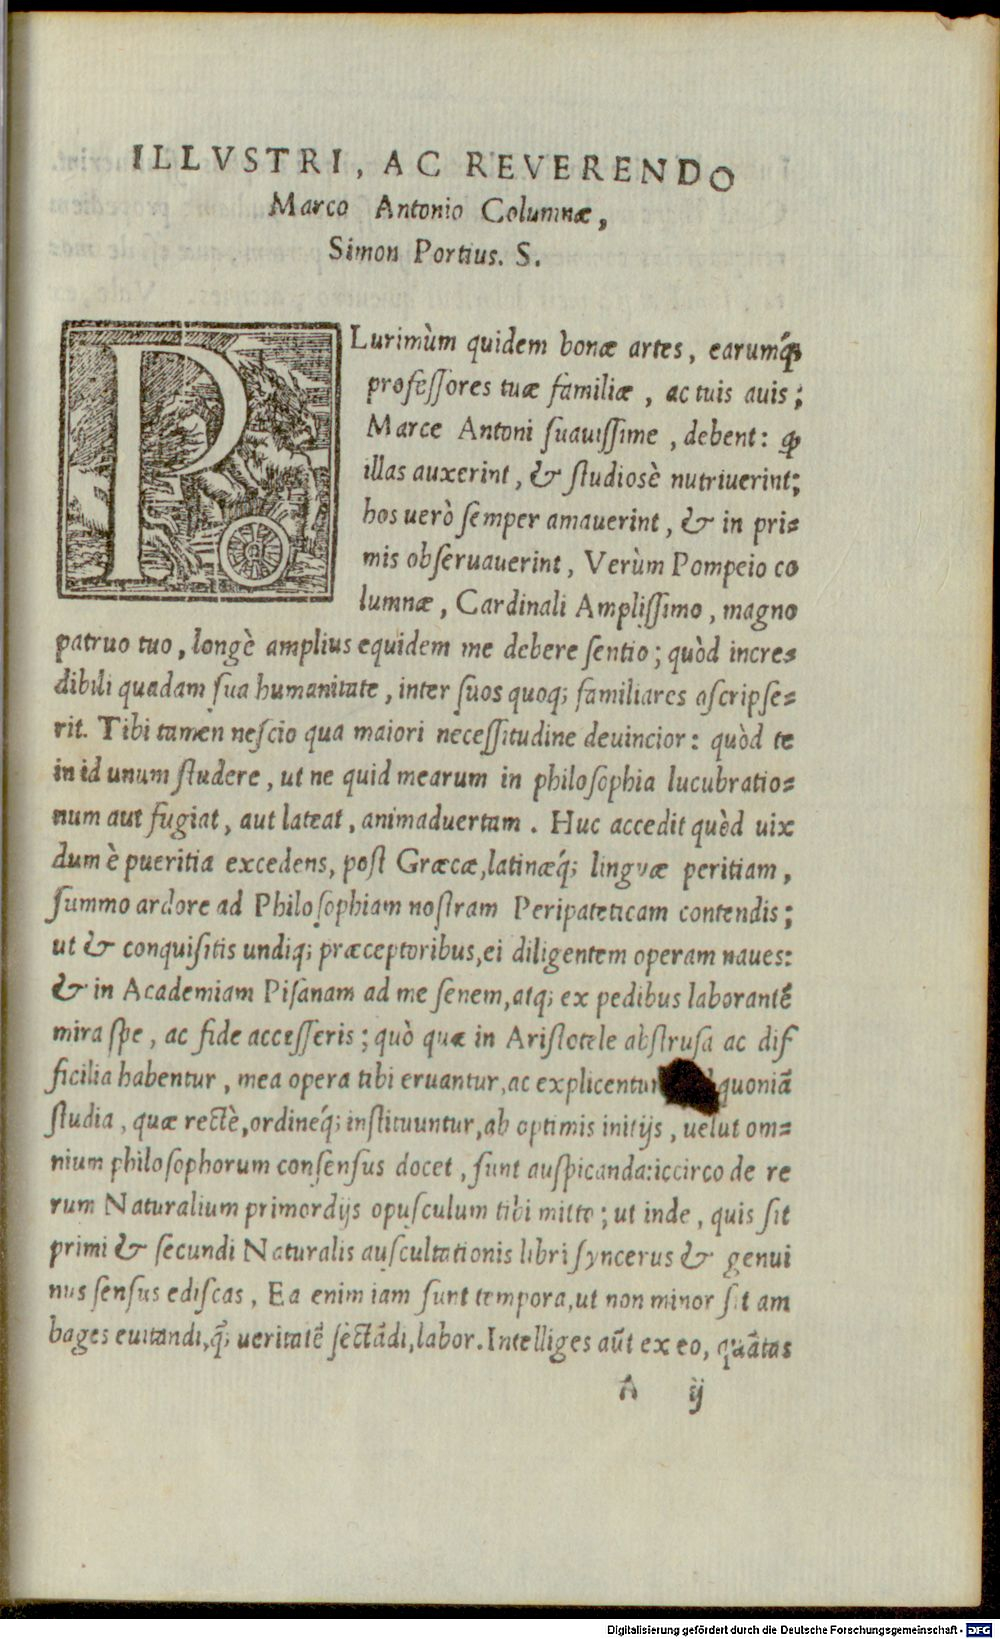 ILLVSTRI, AC REVERENDO
Marco Antonio Columnæ,
Simon Portius. S.
PLurimùm quidem bonæ artes, earumq́ꝫ
professores tuæ familiæ, ac tuis auis;
Marce Antoni suauissime, debent: ꝙ
illas auxerint, & studiosè nutriuerint;
hos uerò semper amauerint, & in pri-
mis obseruauerint, Verùm Pompeio co
lumnæ, Cardinali Amplissimo, magno
patruo tuo, longè amplius equidem me debere sentio; quòd incre-
dibili quadam sua humanitate, inter suos quoq; familiares ascripse-
rit. Tibi tamen nescio qua maiori necessitudine deuincior: quòd te
in id unum studere, ut ne quid mearum in philosophia lucubratio-
num aut fugiat, aut lateat, animaduertam. Huc accedit quèd uix
dum è pueritia excedens, post Græcæ, latinæq́; linguæ peritiam,
summo ardore ad Philosophiam nostram Peripateticam contendis;
ut & conquisitis undiq; præceptoribus, ei diligentem operam naues:
& in Academiam Pisanam ad me senem, atq; ex pedibus laborantẽ
mira spe, ac fide accesseris; quò quæ in Aristotele abstrusa ac dif
ficilia habentur, mea opera tibi eruantur, ac explicentur quoniã
studia, quæ rectè, ordineq́; instituuntur, ab optimis initijs, uelut om-
nium philosophorum consensus docet, sunt auspicanda: iccirco de re
rum Naturalium primordijs opusculum tibi mitto; ut inde, quis sit
primi & secundi Naturalis auscultationis libri syncerus & genui
nus sensus ediscas, Ea enim iam sunt tempora, ut non minor sit am
bages euitandi, q̃; ueritatẽ sectãdi, labor. Intelliges aũt ex eo, quãtas
A ij
Digitalisierung gefördert durch die Deutsche Forschungsgemeinschaft - DFG